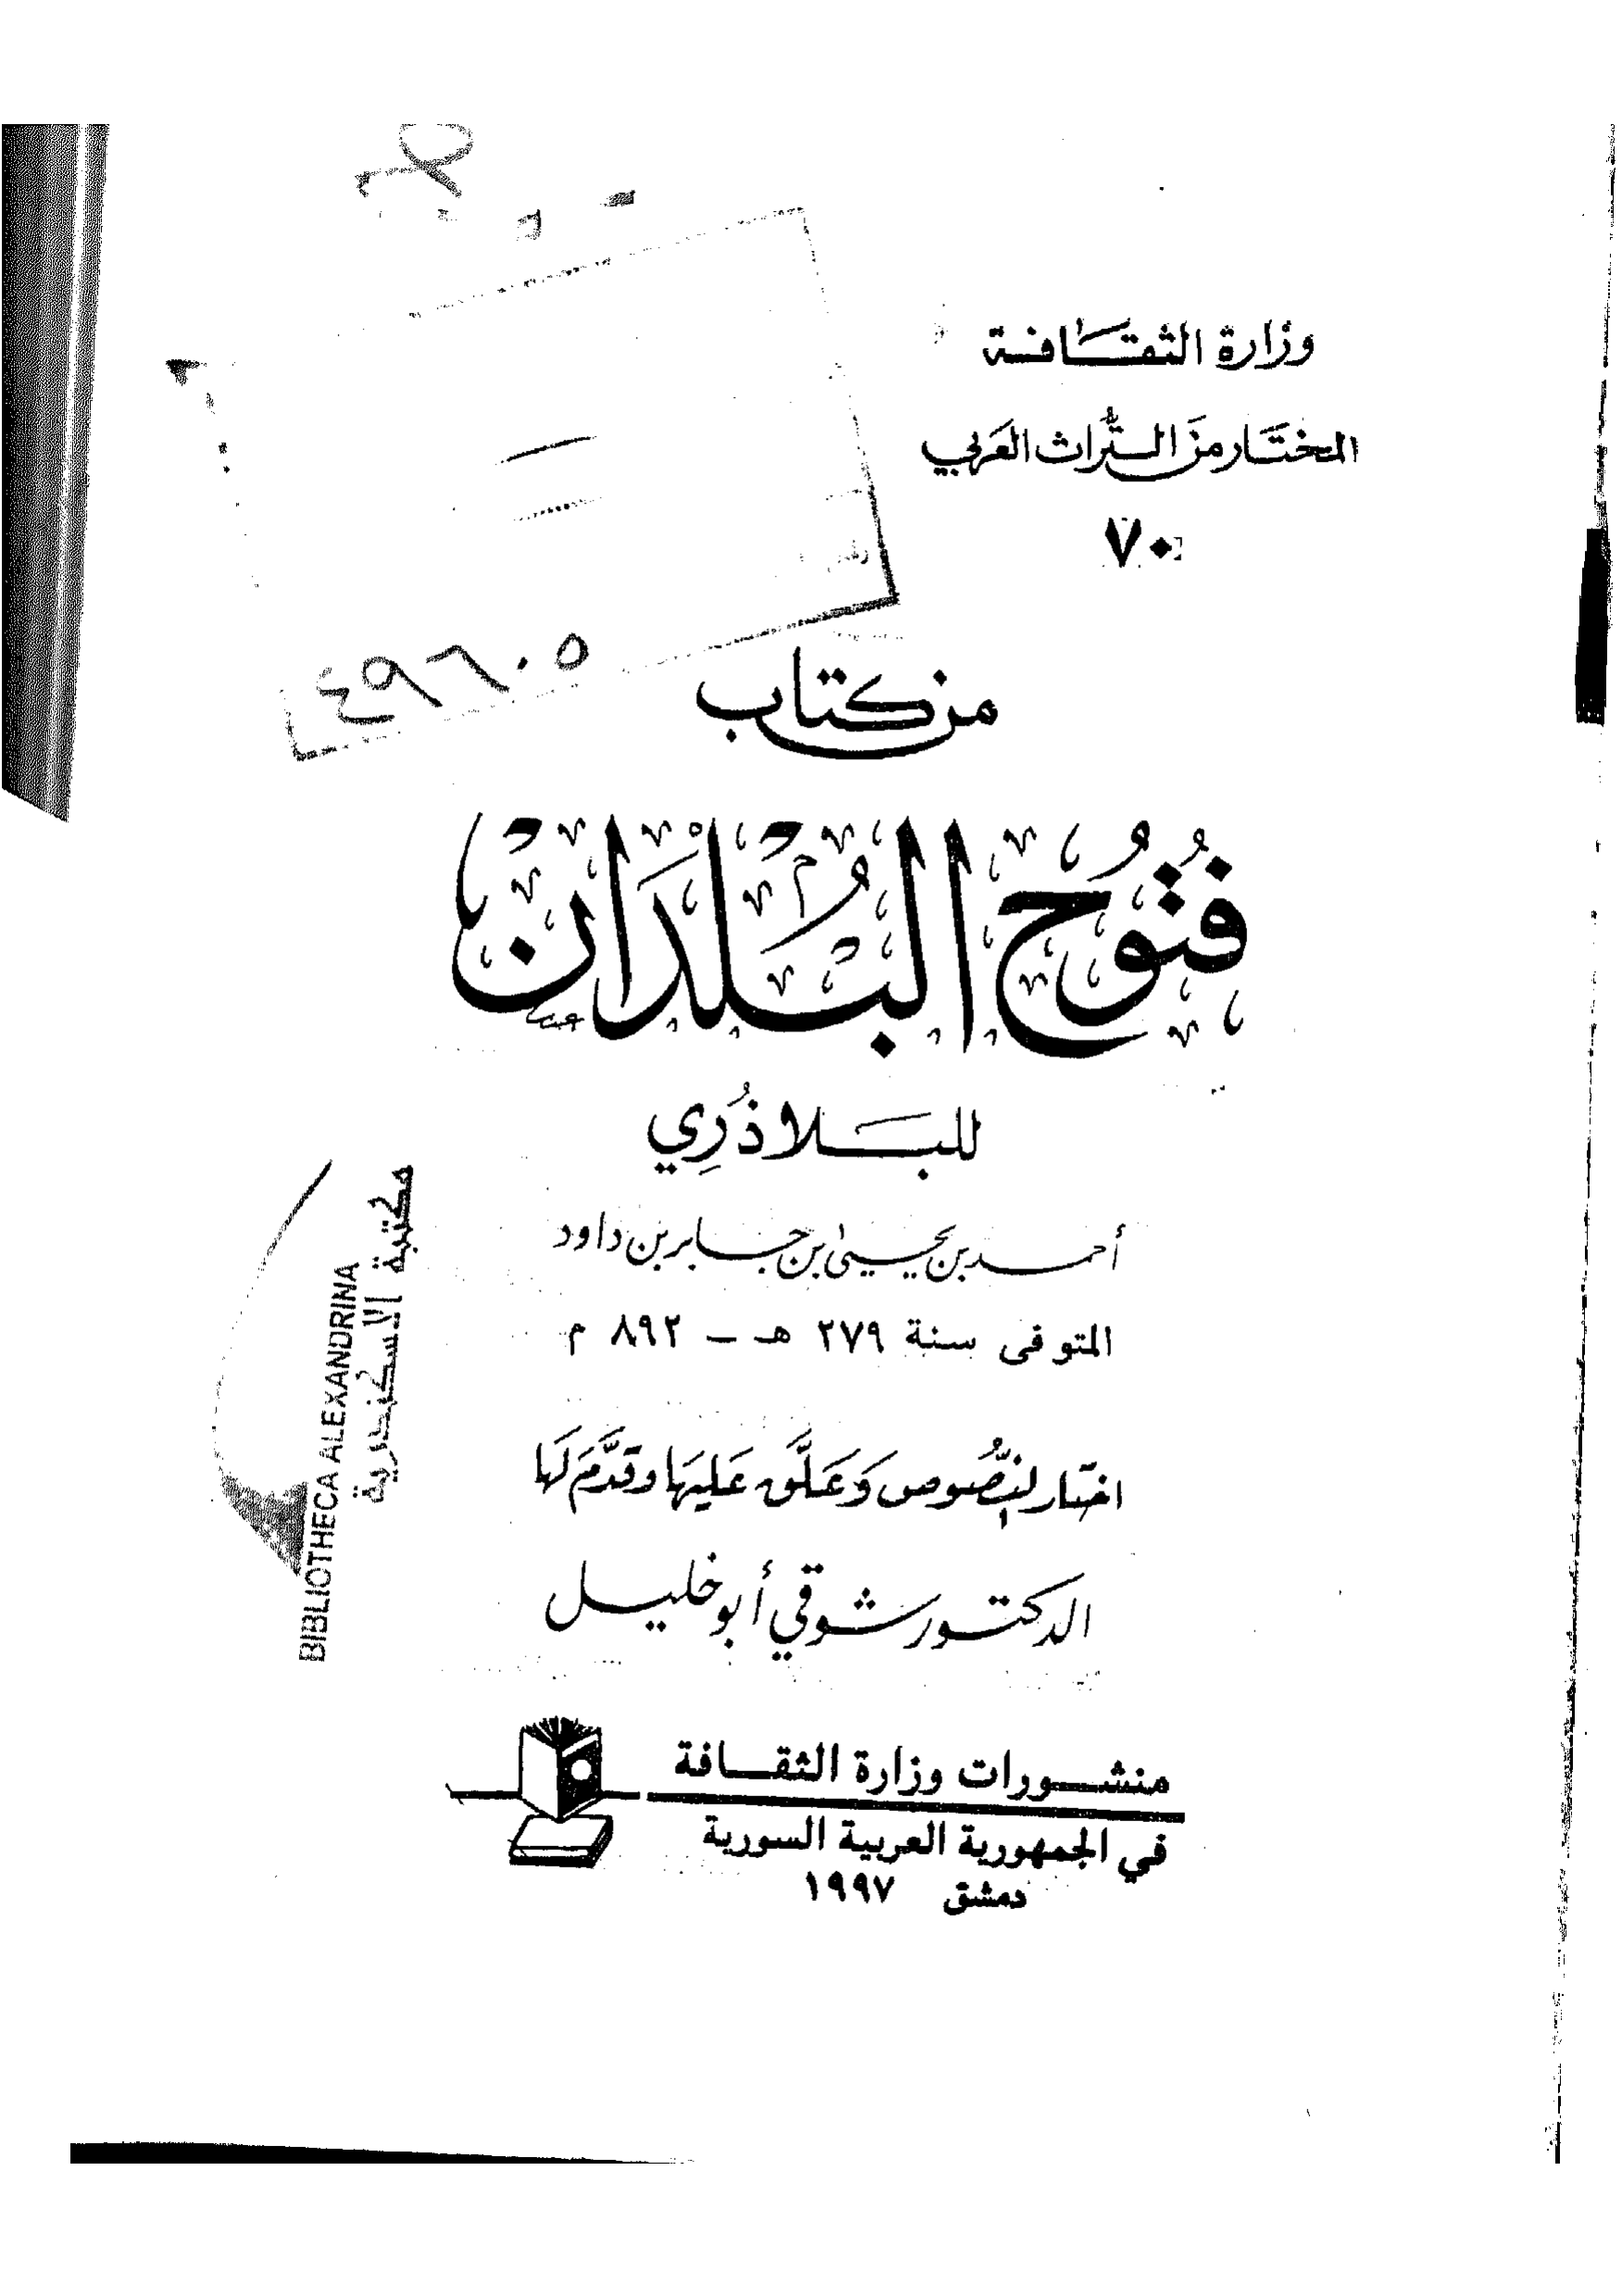 وزارة الثقافة
المختار من التراث العربي
٧٠
٤٩٦٠٥
من كتاب
فُتُوحُ البُلْدَانْ
للبلاذُرِي
أحمد بن يحيى بن جابر بن داود
المتوفى سنة ٢٧٩ هـ - ٨٩٢ م
اختار النصُّوص وَعَلَّق عَليهَا وقدَّمَ لَهَا
الدكتور شوقي أبو خليل
مكتبة الاسكندرية
BIBLIOTHECA ALEXANDRINA
منشورات وزارة الثقافة
في الجمهورية العربية السورية
دمشق ١٩٩٧